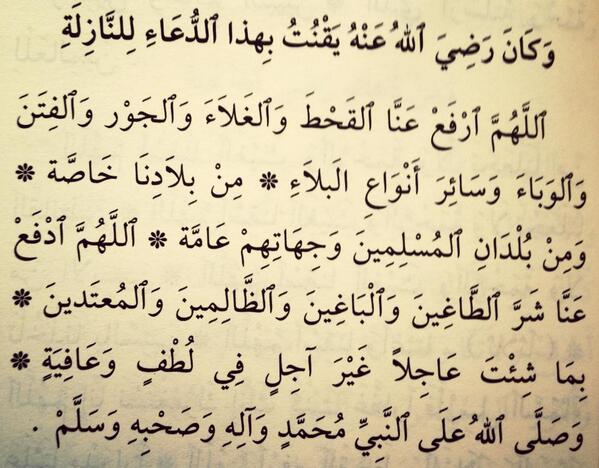 وَكَانَ رَضِيَ ٱللهُ عَنْهُ يَقْنُتُ بِهذا ٱلدُّعَاءِ لِلنَّازِلَةِ
ٱللَّهُمَّ ٱرْفَعْ عَنَّا ٱلقَحْطَ وَٱلغَلَاءَ وَٱلجَوْرَ وَٱلفِتَنَ
وَٱلوَبَاءَ وَسَائِرَ أَنْوَاعِ ٱلبَلَاءِ ❊ مِنْ بِلَادِنَا خَاصَّة ❊
وَمِنْ بُلْدَانِ ٱلمُسْلِمِينَ وَجِهَاتِهِمْ عَامَّة ❊ ٱللَّهُمَّ ٱدْفَعْ
عَنَّا شَرَّ ٱلطَّاغِينَ وَٱلْبَاغِينَ وَٱلظَّالِمِينَ وَٱلمُعتَدينَ ❊
بِمَا شِئْتَ عَاجِلاً غَيْرَ آجِلٍ فِي لُطْفٍ وَعَافِيَةٍ ❊
وَصَلَّى ٱللهُ عَلَى ٱلنَّبِيِّ مُحَمَّدٍ وَآلِهِ وَصَحْبِهِ وَسَلَّمْ .